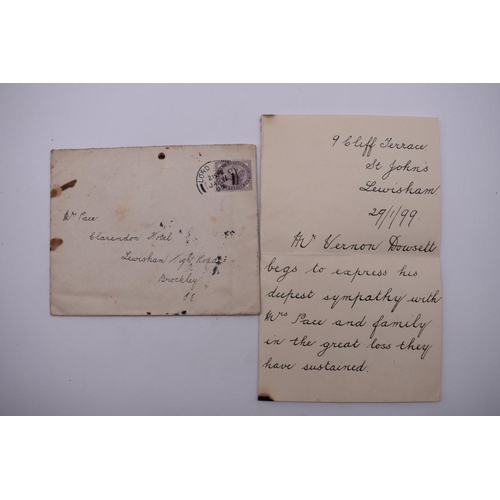 LONDON
JA 31
Mr Pace
Clarendon Hotel
Lewisham High Road
Brockley
S.E
9 Cliff Terrace
St John's
Lewisham
29/1/99
Mr Vernon Dowsett
begs to express his
deepest sympathy with
Mrs Pace and family
in the great loss they
have sustained.